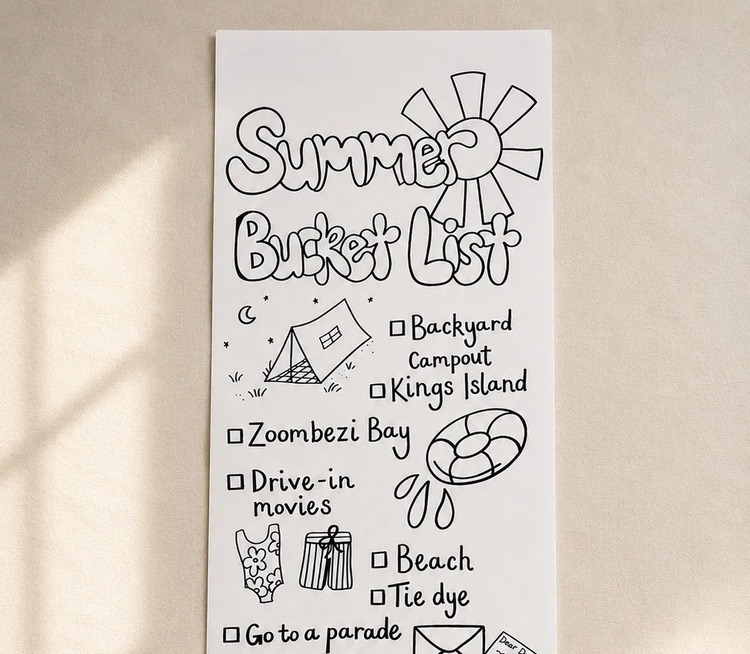 Summer
Bucket List
Backyard
Campout
Kings Island
Zoombezi Bay
Drive-in
movies
Beach
Tie dye
Go to a parade
Dear